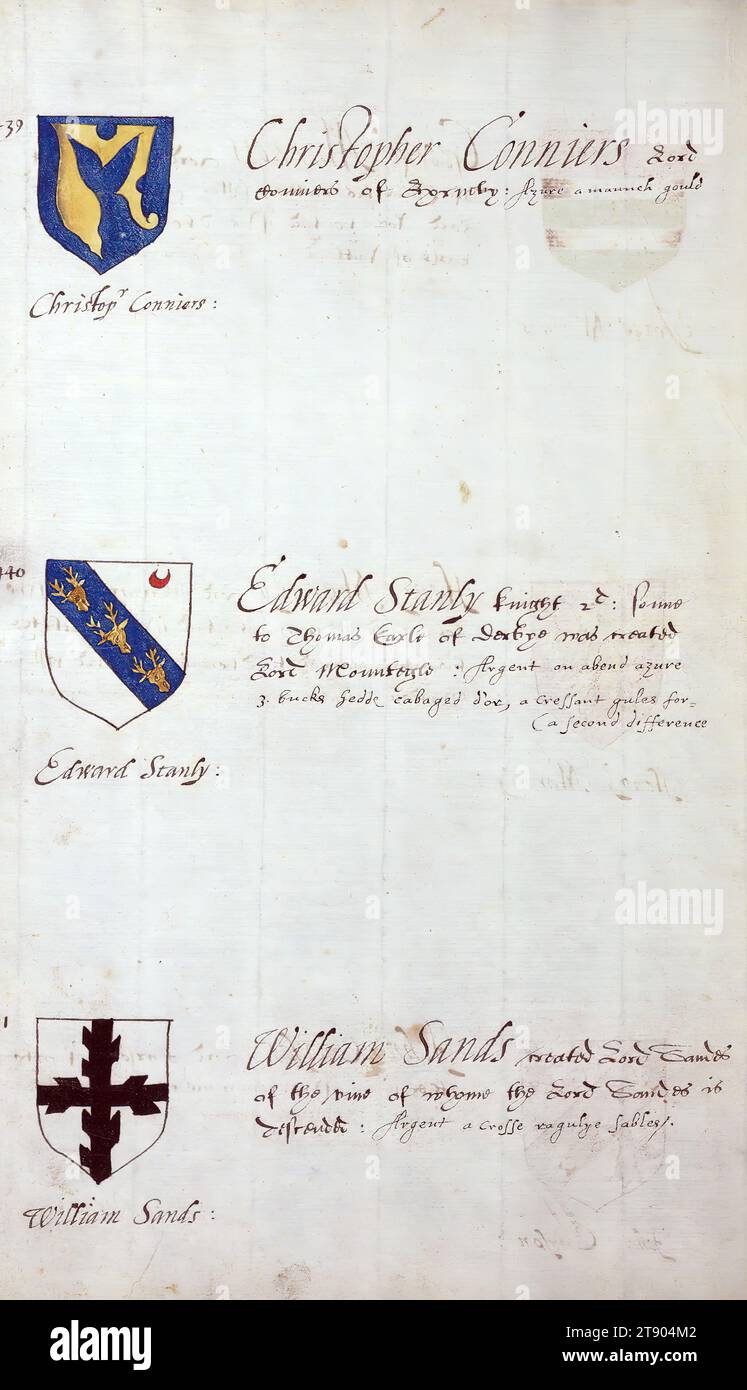 39
Christopher Conniers Lord
Conniers of Horneby: Azure a maunch gould
Christopr Conniers:
440
Edward Stanly knight 2d: sonne
to Thomas Earle of derbye was created
Lord Mountegle: Argent on abend azure
3. bucks hedde cabaged d'or, a cressant gules for=
(a second difference
Edward Stanly:
1
William Sands created Lord Sandes
of the vine of whome the Lord Sandes is
descended: Argent a crosse ragulye sables/.
William Sands:
alamy
alamy
alamy
alamy
Image ID: 2T904M2
www.alamy.com